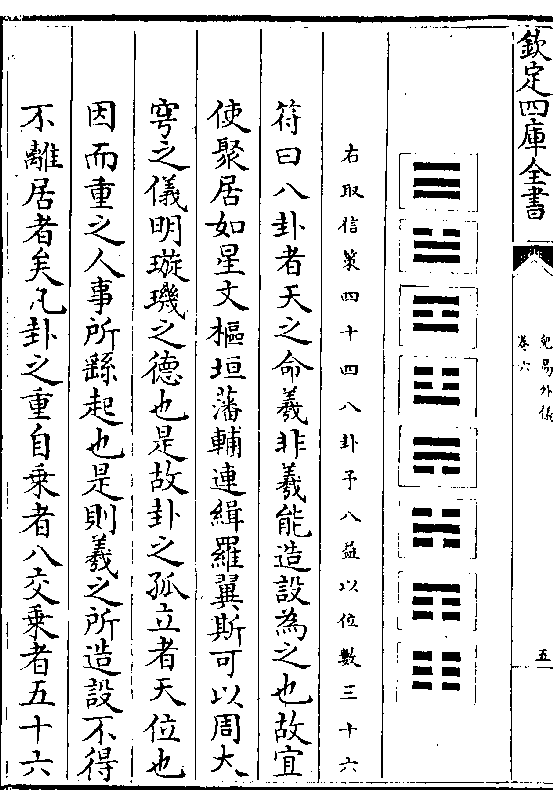 欽定四庫全書
兒易外儀
卷六
五
右取信策四十四八卦予八益以位數三十六
符曰八卦者天之命羲非羲能造設為之也故宜
使聚居如星文樞垣藩輔連緝羅翼斯可以周大
穹之儀明璇璣之德也是故卦之孤立者天位也
因而重之人事所繇起也是則羲之所造設不得
不離居者矣凡卦之重自乗者八交乗者五十六